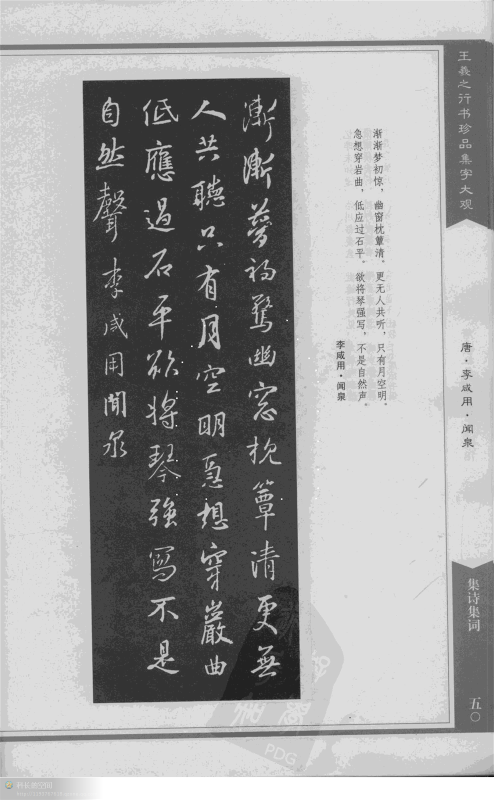 王羲之行书珍品集字大观
唐·李咸用·闻泉
集诗集词
五〇
渐渐梦初惊，幽窗枕簟清。更无人共听，只有月空明。
急想穿岩曲，低应过石平。欲将琴强写，不是自然声。
李咸用·闻泉
漸漸夢初驚幽窓枕簟清更無
人共聽只有月空明急想穿巖曲
低應過石平欲將琴強寫不是
自然聲 李咸用聞泉
PDG